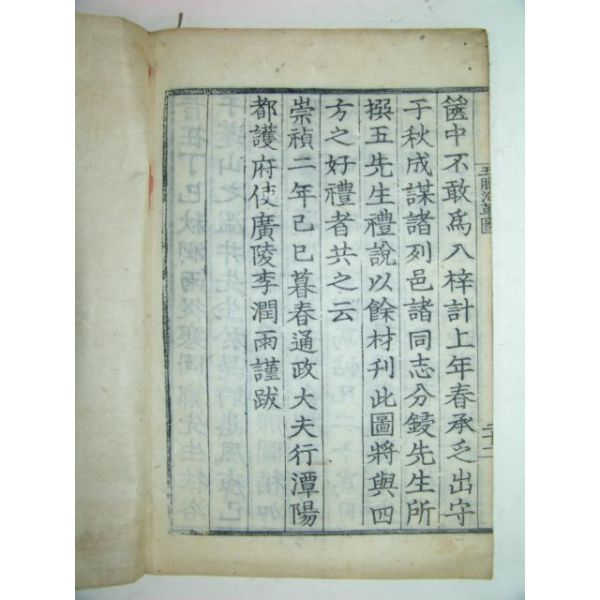 五服沿革圖
二十二
篋中不敢爲入梓計上年春承乏出守
于秋成謀諸列邑諸同志分鋟先生所
撰五先生禮說以餘材刊此圖將與四
方之好禮者共之云
崇禎二年己巳暮春通政大夫行潭陽
都護府使廣陵李潤雨謹跋